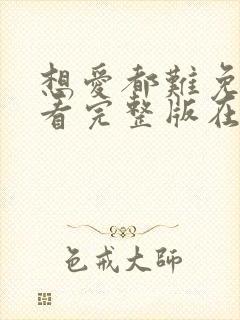 想愛都難免
看完整版在
色戒大師